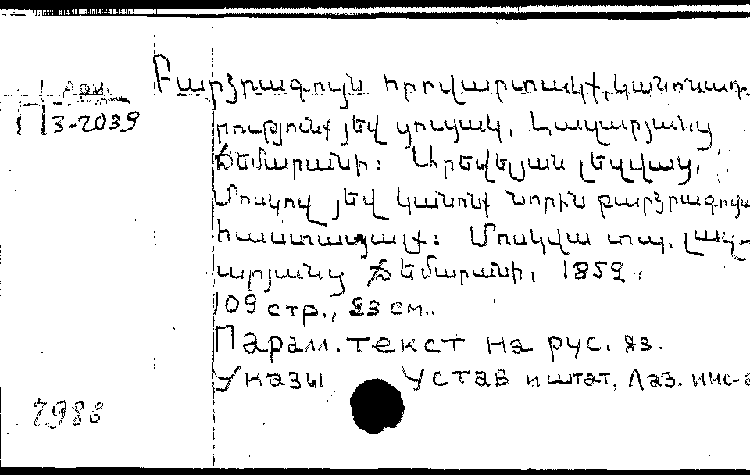 Բարձրագույն հրովարտակք, կանոնադ-
րությունք յեվ ցուցակ, Լազարյանց
Ճեմարանի: Արեվելյան լեզվաց,
Մոսկով յեվ կանոնք նորին բարձրագույն
հաստատյալք: Մոսկվա տպ. Լազ-
արյանց Ճեմարանի, 1859,
П3-2039
109 стр., 23 см..
Парал. текст на рус. яз.
Указы Устав и штат, Лаз. инс-
7988